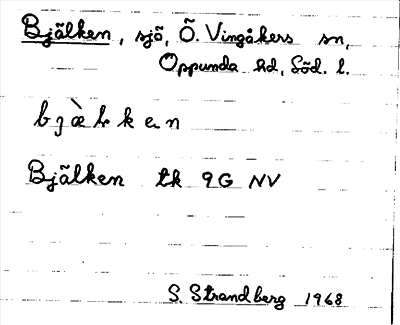 Bjälken, sjö, Ö. Vingåkers sn,
Oppunda hd, Söd. l.
bjæ̀lken
Bjälken tk 9G NV
S. Strandberg 1968